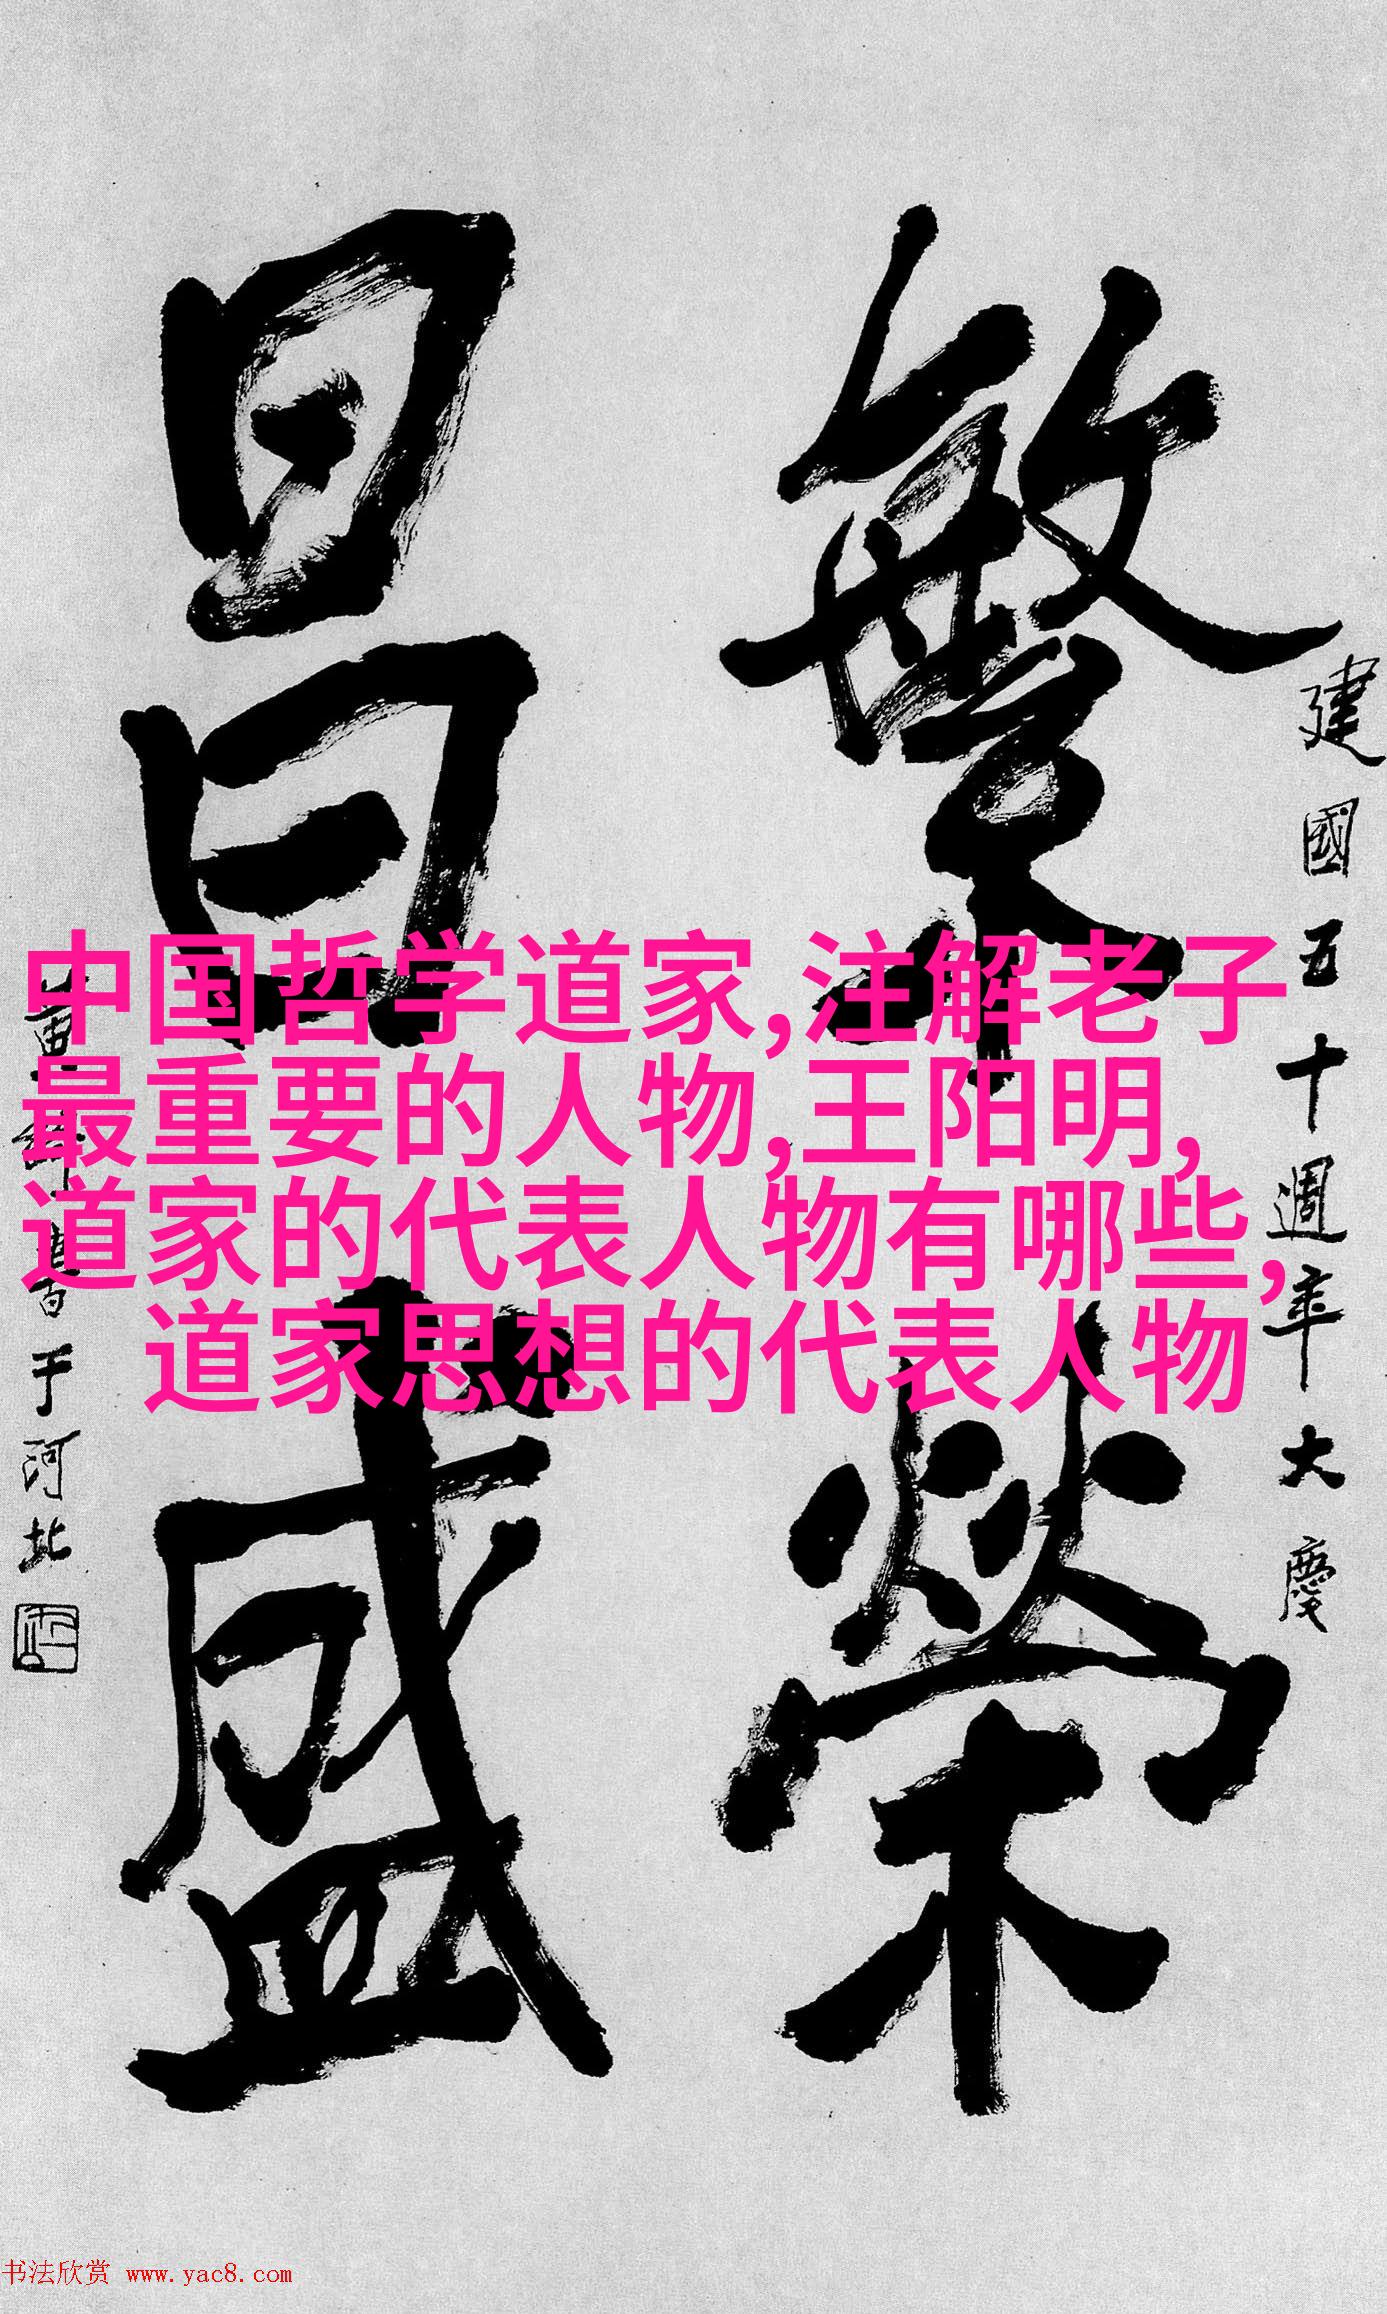 繁榮
昌盛
建國五十週年大慶
于河北
中国哲学道家,注解老子
最重要的人物,王阳明,
道家的代表人物有哪些,
道家思想的代表人物
书法欣赏 www.yac8.com